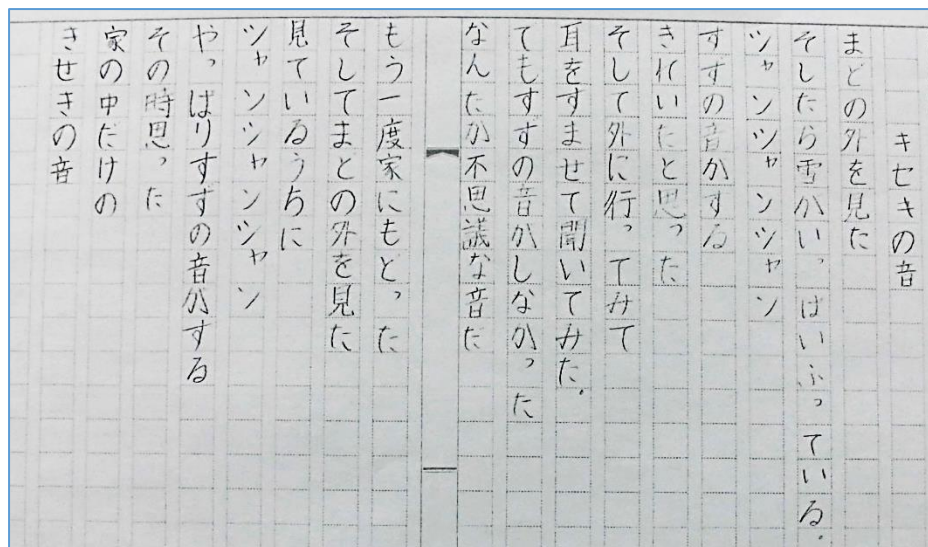 キセキの音
まどの外を見た
そしたら雪がいっぱいふっている。
シャンシャンシャン
すずの音がする
きれいだと思った
そして外に行ってみて
耳をすませて聞いてみた。
でもすずの音がしなかった
なんだか不思議な音だ
もう一度家にもどった
そしてまどの外を見た
見ているうちに
シャンシャンシャン
やっぱりすずの音がする
その時思った
家の中だけの
きせきの音